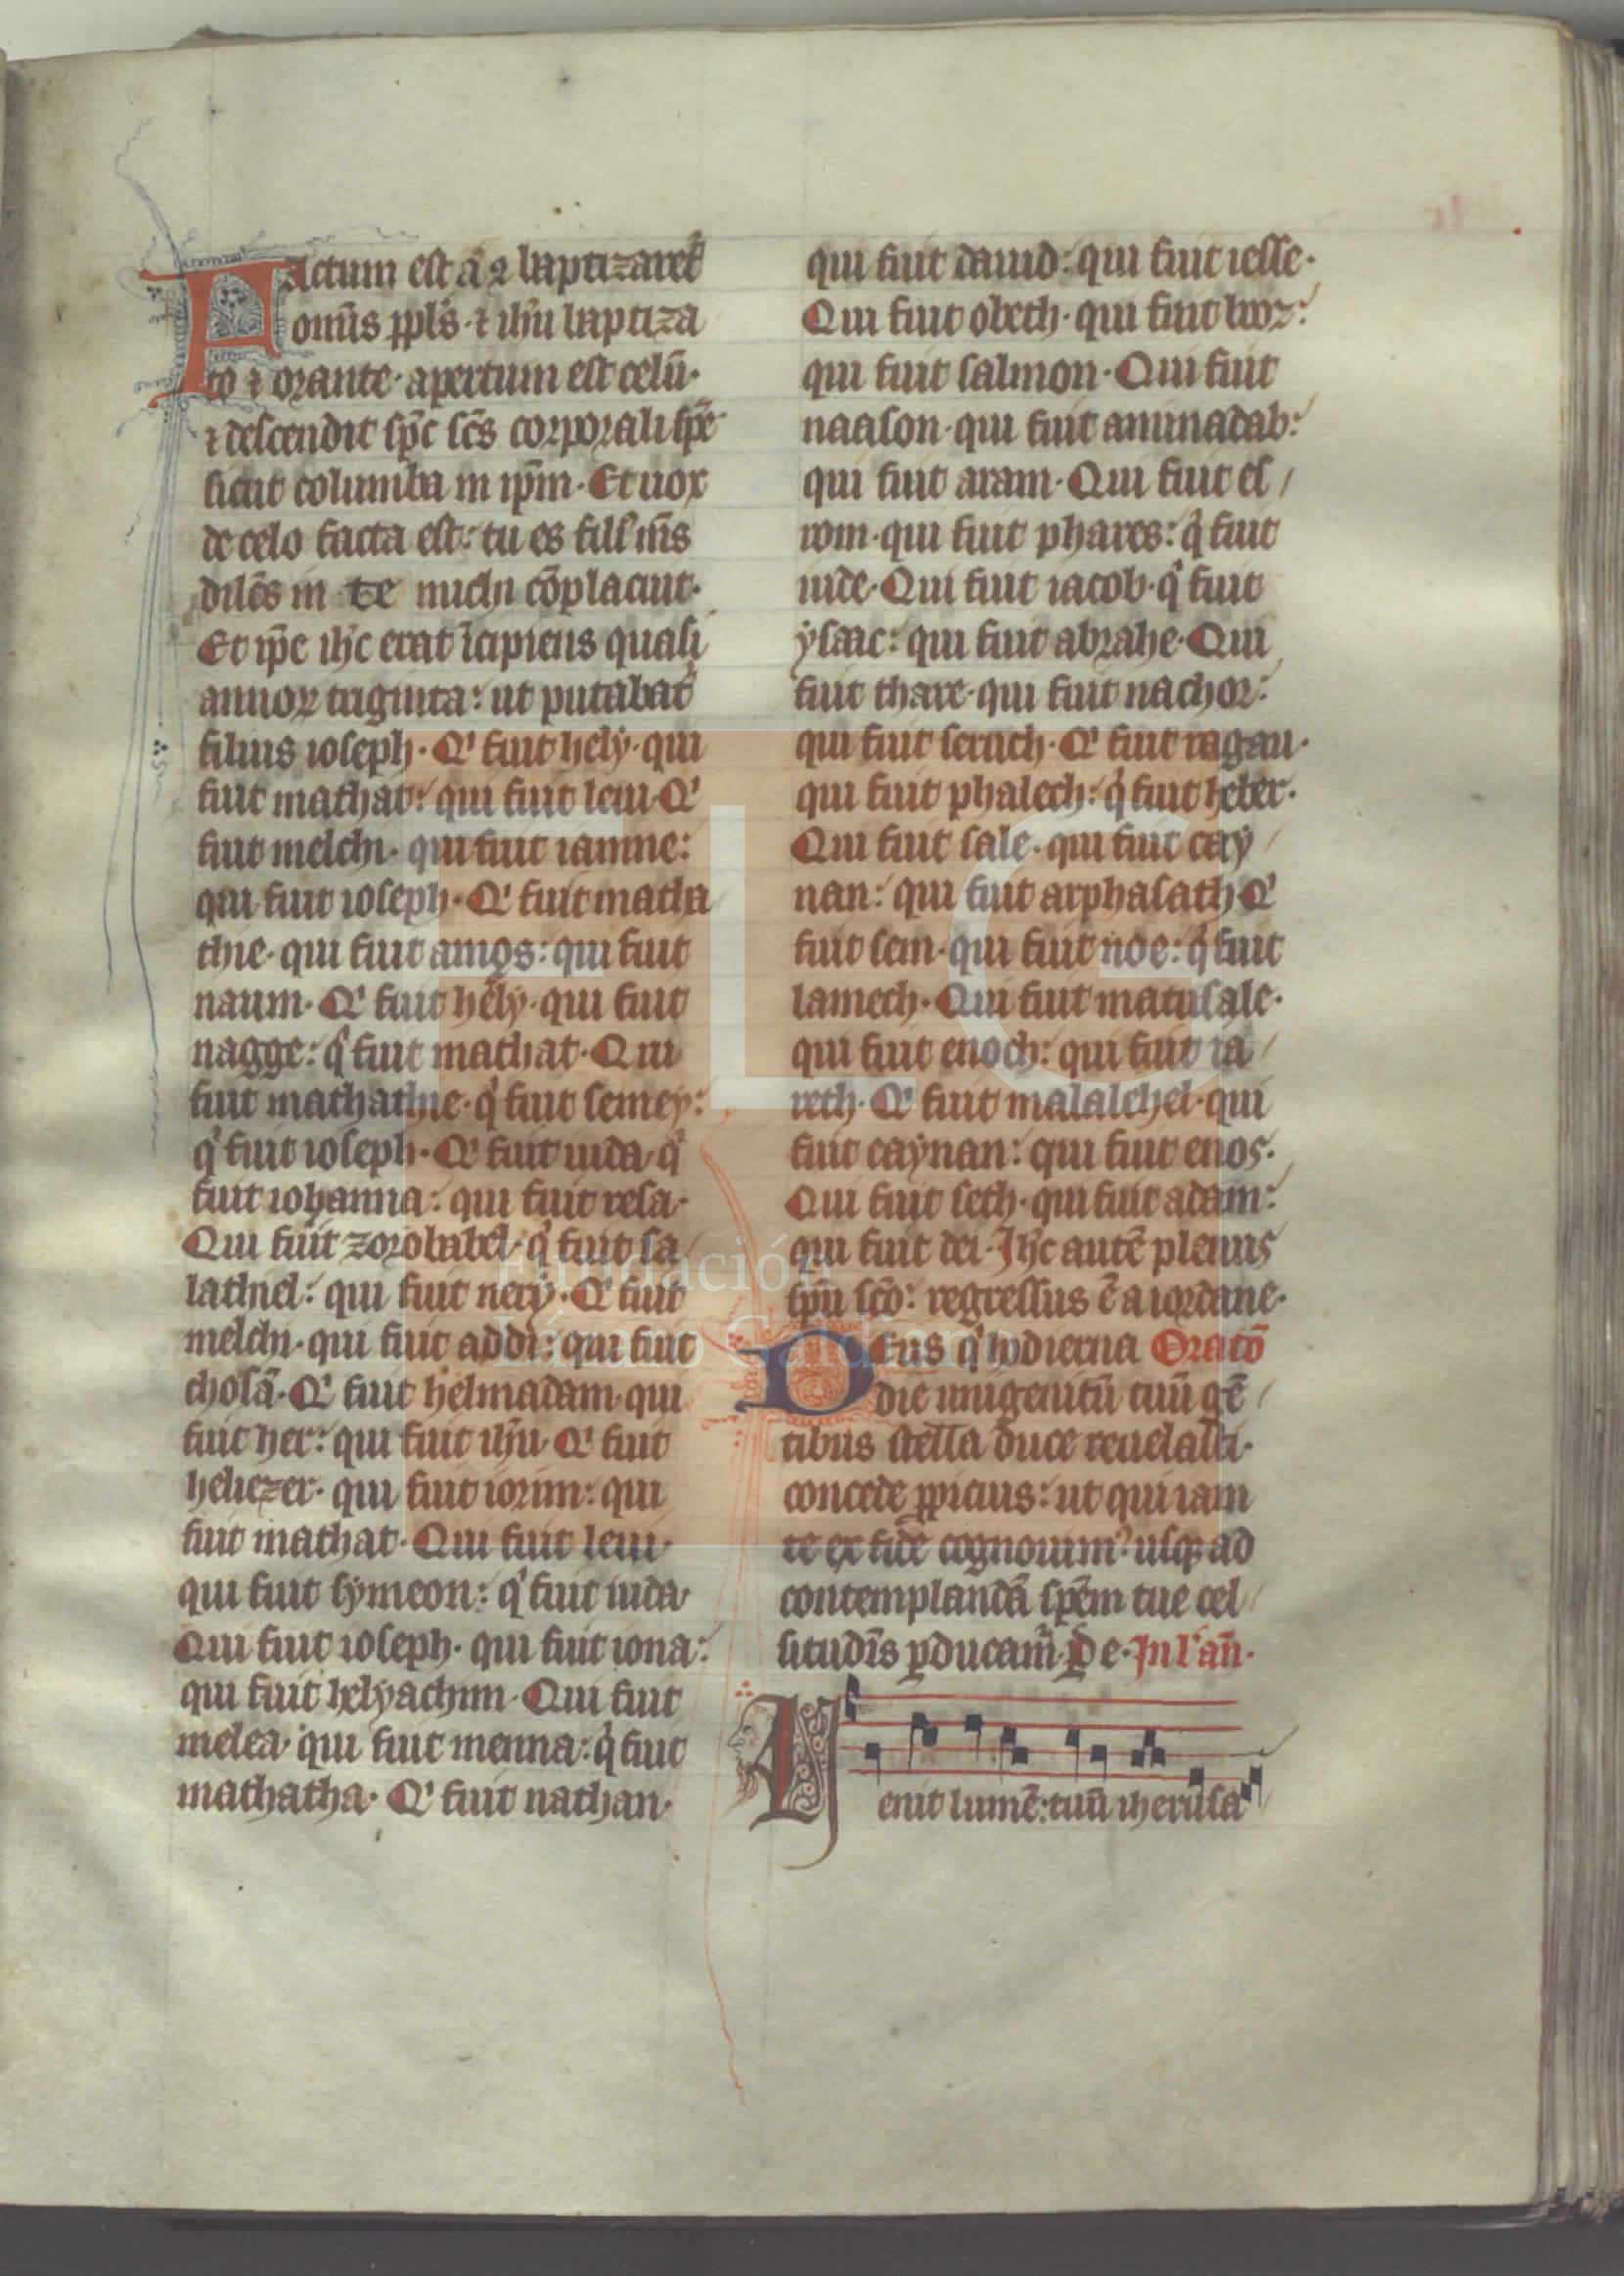 Factum est aū ꝯ baptizaret᷑
om̄is ppl̄s · ⁊ ih̄u baptiza
to ⁊ orante · apertum est celū ·
⁊ descendit sp̄c sc̄s corporali sp̄e
sicut columba in ip̄m · Et uox
de celo facta est : tu es fili᷒ m̄s
dilc̄s in te michi cōplacuit ·
Et ip̄e ih̄c erat īcipiens quasi
annoꝝ triginta : ut putabat᷑
filius ioseph · Qͥ fuit hely · qui
fuit mathat : qui fuit leui · Qͥ
fuit melchi · qui fuit iamne :
qui fuit ioseph · Qͥ fuit matha
thie · qui fuit amos : qui fuit
naum · Qͥ fuit hely · qui fuit
nagge : qͥ fuit mathat · Qui
fuit mathathie · qͥ fuit semey :
qͥ fuit ioseph · Qͥ fuit iuda · qͥ
fuit iohanna : qui fuit resa ·
Qui fuit zorobabel · qͥ fuit sa
lathiel : qui fuit nery · Qͥ fuit
melchi · qui fuit addi : qui fuit
chosā · Qͥ fuit helmadam · qui
fuit her : qui fuit ih̄u · Qͥ fuit
heliezer · qui fuit iorim : qui
fuit mathat · Qui fuit leui ·
qui fuit symeon : qͥ fuit iuda ·
Qui fuit ioseph · qui fuit iona :
qui fuit helyachim · Qui fuit
melea · qui fuit menna : qͥ fuit
mathatha · Qͥ fuit nathan ·
qui fuit dauid : qui fuit iesse ·
Qui fuit obeth · qui fuit booz :
qui fuit salmon · Qui fuit
naason · qui fuit aminadab :
qui fuit aram · Qui fuit es /
rom · qui fuit phares : qͥ fuit
iude · Qui fuit iacob · qͥ fuit
ysaac : qui fuit abrahe · Qui
fuit thare · qui fuit nachor :
qui fuit seruch · Qͥ fuit ragau ·
qui fuit phalech : qͥ fuit heber ·
Qui fuit sale · qui fuit cay /
nan : qui fuit arphasath · Qͥ
fuit sem · qui fuit noe : qͥ fuit
lamech · Qui fuit matusale ·
qui fuit enoch : qui fuit ia /
reth · Qͥ fuit malalehel · qui
fuit caynan : qui fuit enos ·
Qui fuit seth · qui fuit adam :
qui fuit dei · Ih̄c autē plenus
sp̄u sc̄o : regressus ē a iordane ·
Deus qͥ hodierna Oratō
die unigenitū tuū gē /
tibus stella duce reuelasti ·
concede ꝓpicius : ut qui iam
te ex fide cognouim᷒ usqꝫ ad
contemplandā sp̄em tue cel /
situdīs ꝑducam᷑ · P̲ e · In l' an̄ ·
Uenit lumē : tuū iherusa
FLG
Fundación
Lázaro Galdiano